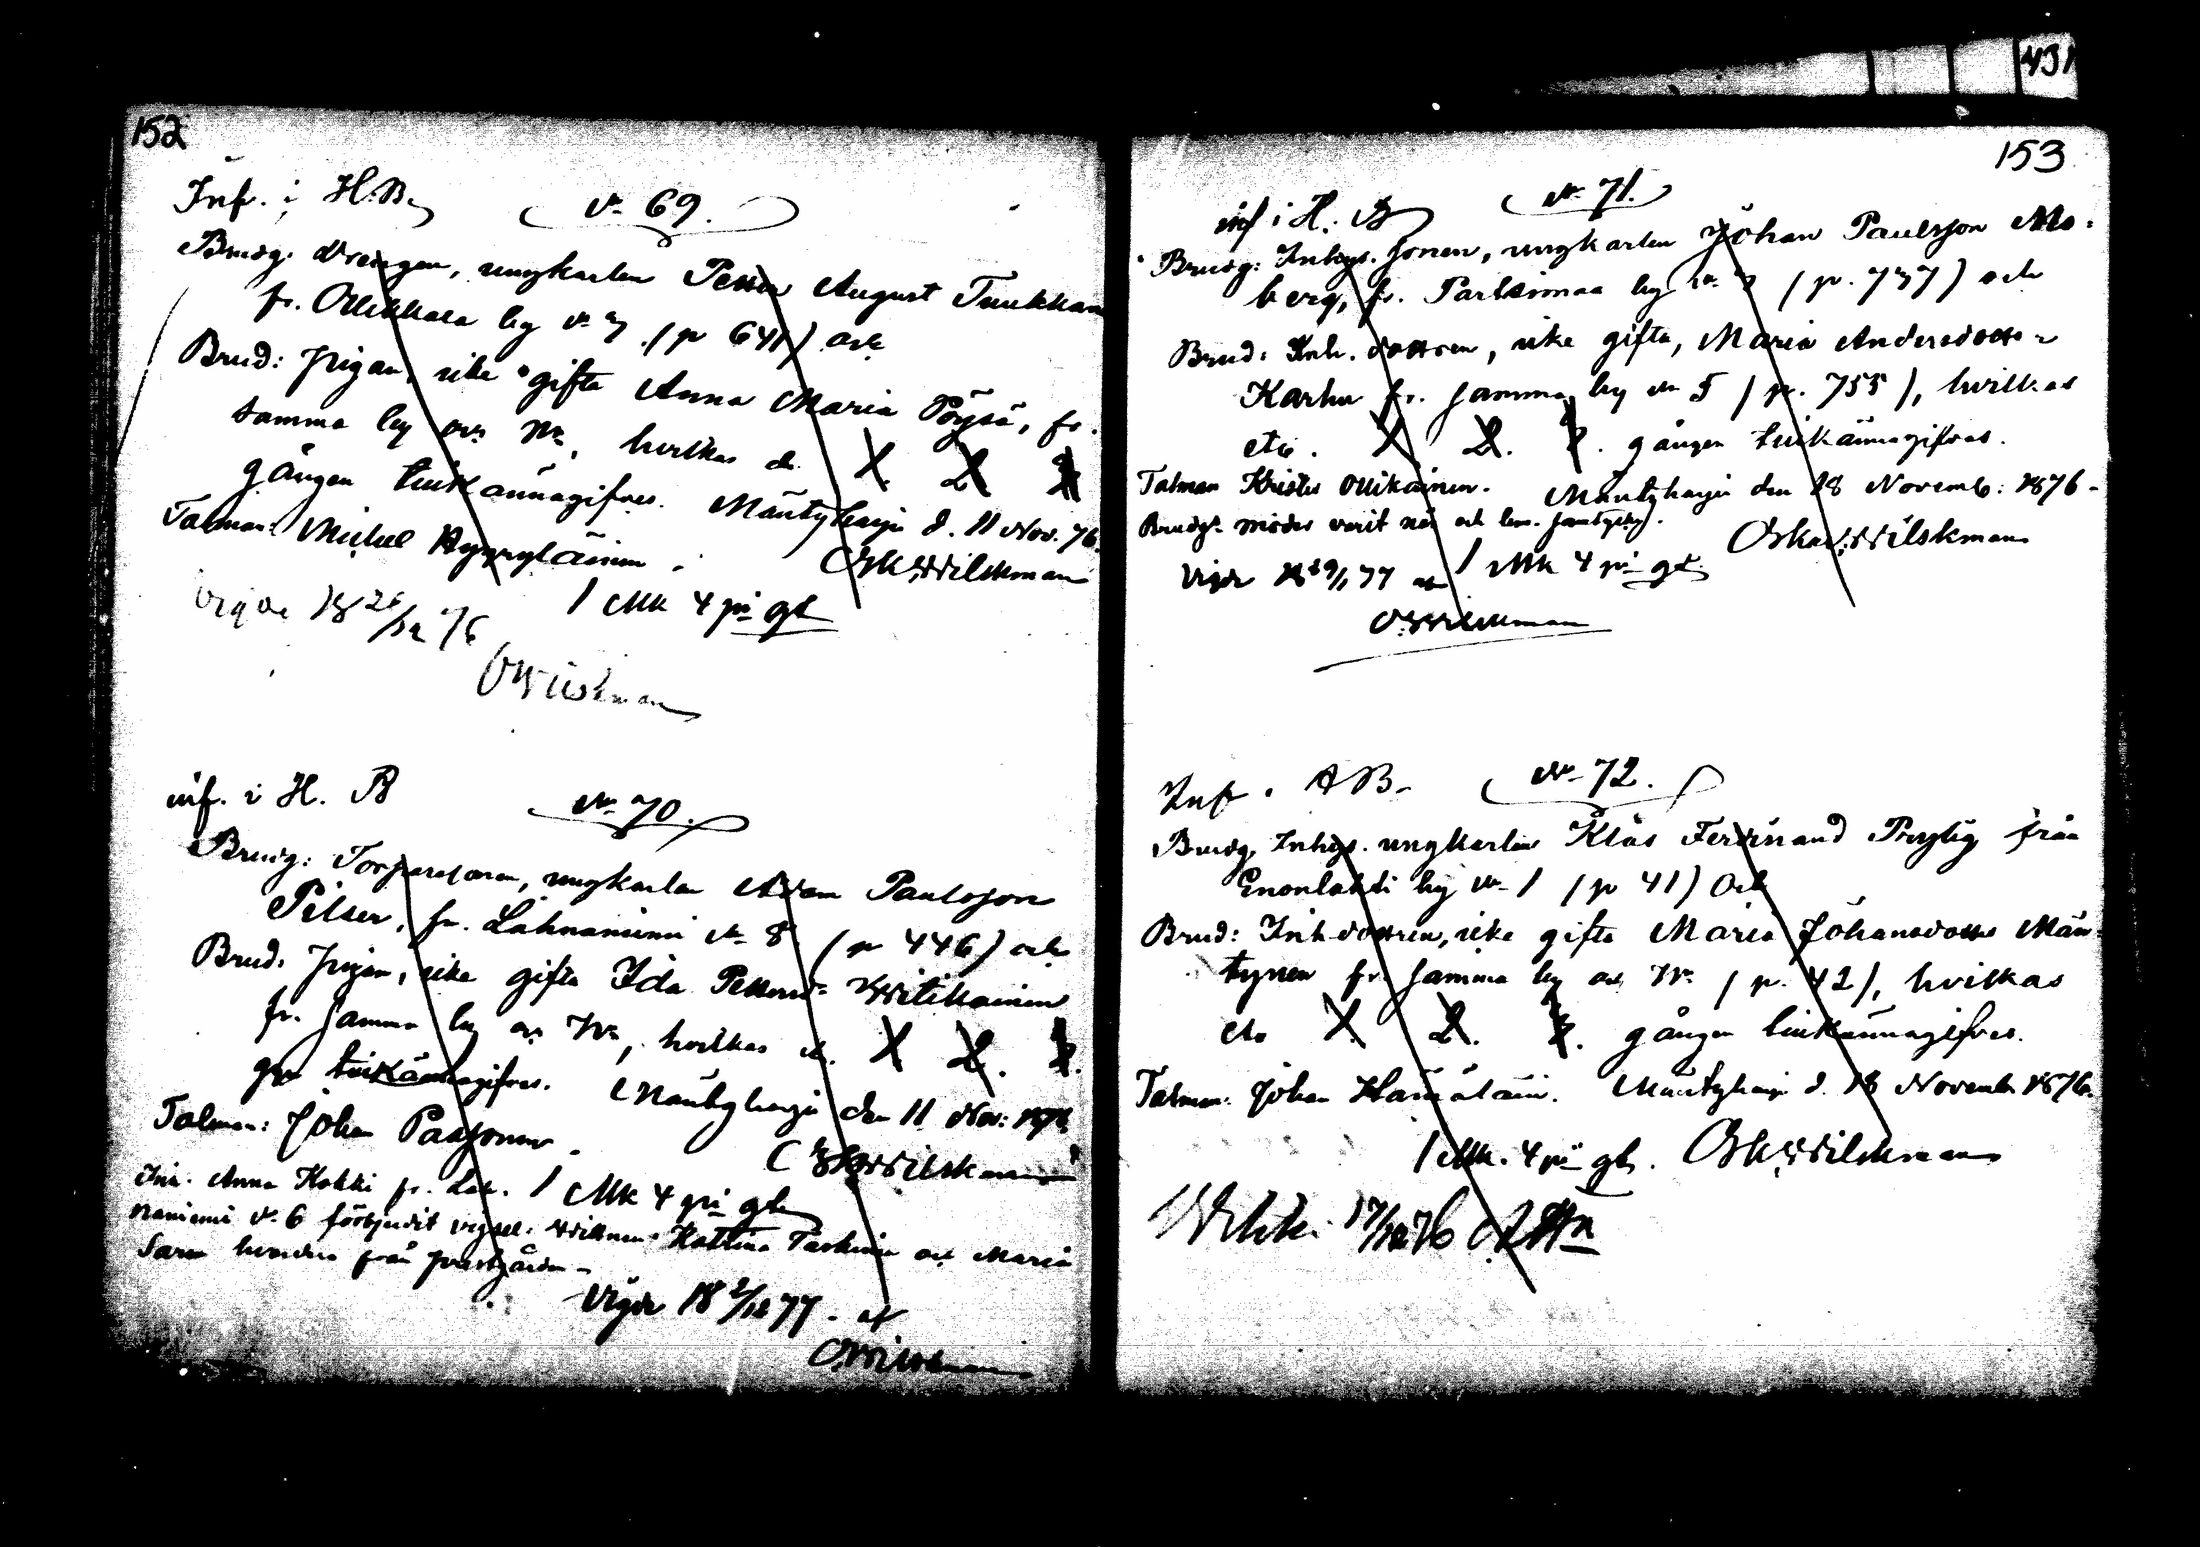 431
152
Inf. i H.B.
N. 69.
Brudg. drängen, ungkarlen Petter August Tuukkan
fr. Ollikkala by N. 7 (p 641) och
Brud: pigan, icke gifta Anna Maria Pöysä, fr.
samma by o. N., hvilkas etc. 1. 2. 3.
gången tillkännagifves. Mäntyharju d. 11 Nov. 76.
Talman: Mickel Hyyryläinen. Osk. Wilskman
1 Mk 4 pi gl
Vigde 18 26/12 76
OWilskman
inf. i H. B
No 70.
Brudg: Torparesonen, ungkarlen Adam Paulsson
Pitser, fr. Lahnaniemi N. 8 (p 446) och
Brud: pigan, icke gifta Ida Pettersd. Witikainen
fr. samma by o. N., hvilkas etc. 1 2. 3.
gn tillkännagifves. Mäntyharju den 11 Nov: 1876
Talman: Johan Paasonen. Osk. Wilskman
Inh. Anna Kokki fr. Lah- 1 Mk 4 pi gl
naniemi N. 6 förbjudit vigsel: Wittnen: Katrina Taskinen och Maria
Sara hvardera från prestgården -
Vigde 18 2/12 77. af
OWilskman
153
inf i H. B
No 71.
Brudg: Inhys. sonen, ungkarlen Johan Paulsson Mo-
berg, fr. Partsimaa by N. (p. 737) och
Brud: Inh. dottren, icke gifta, Maria Andersdotter
Karhu fr. samma by No 5 (p. 755), hvilkas
etc. 1. 2. 3. gången tillkännagifves.
Talman Krister Ollikainen. Mäntyharju den 18 Novemb: 1876 -
Brudgs moder varit när och lem. samtycke.
1 Mk 4 pi gl. Oskar Wilskman
Vigde 18 9/1 77 af
OWilskman
Inf. i HB.
No 72.
Brudg. Inhys. ungkarlen Klas Ferdinand Prylig från
Enonlahti by No 1 (p 41) och
Brud: Inh-dottren, icke gifta Maria Johansdotter Män-
tynen fr. samma by och No (p. 42), hvilkas
etc 1. 2. 3. gången tillkännagifves.
Talman: Johan Hämäläin. Mäntyharju d. 18 Novemb. 1876.
1 Mk. 4 pi gl. Osk. Wilskman
17/12 76